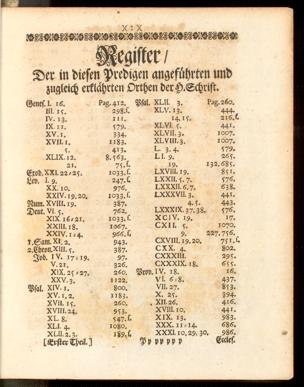 X:X
Register/
Der in diesen Predigen angeführten und
zugleich erklährten Orthen der H. Schrift.
Genes. I. 16. Pag. 412.
III. 15. 298.f.
IV. 13. 111.
IX. 11. 579.
XV. 1. 334.
XVII. 1. 1183.
5. 413.
XLIX. 12. 8. 563.
21. 75.f.
Exod. XXI. 22:25. 1033.f.
Lev. I. 9. 247.f.
XX. 10. 976.
XXIV. 19. 20. 1033.f.
Num. XVIII. 19. 387.
Deut. VI. 5. 762.
XIX 16:21. 1033.f.
XXIII. 18. 1067.
XXIV. 1:4. 966.f.
1. Sam. XI. 2. 943.
2. Chron. XIII. 5. 387.
Job IV. 17:19. 97.
V. 21. 326.
XIX. 25:27. 260.
XXV. 3. 1122.
Psal. XIV. 1. 800.
XV. 1, 2. 1183.
XVII. 15. 260.
XVIII. 24. 953.
XL. 8. 547.f.
XLI. 4. 1080.
XLII. 2. 3. 189.f.
[Erster Theil.]
Psal. XLII. 3. Pag. 260.
XLV. 13. 444.
14. 15. 216.f.
XLVI. 5. 441.
XLVII. 3. 1007.
XLVIII. 3. 1007.
L. 3. 4. 579.
LI. 9. 265.
19. 132, 685.
LXVIII. 19. 851.
LXXII. 5. 7. 576.
LXXXII. 6. 7. 638.
LXXXVII. 3. 441.
4. 5. 443.
LXXXIX. 37. 38. 576.
XCIV. 19. 17.
CXII. 5. 1070.
9. 227, 756.
CXVIII. 19. 20. 751.f.
CXX. 4. 802.
CXXXIII. 295.
CXXXIX. 18. 655.
Prov. IV. 18. 16.
VI. 6:8. 437.
VII. 27. 853.
X. 25. 394.
XII. 26. 416.
XVIII. 10. 441.
XIX. 13. 983.
XXX. 11:14. 686.
XXXI. 10, 29. 30. 986.
Pp pp pp p Eccles.